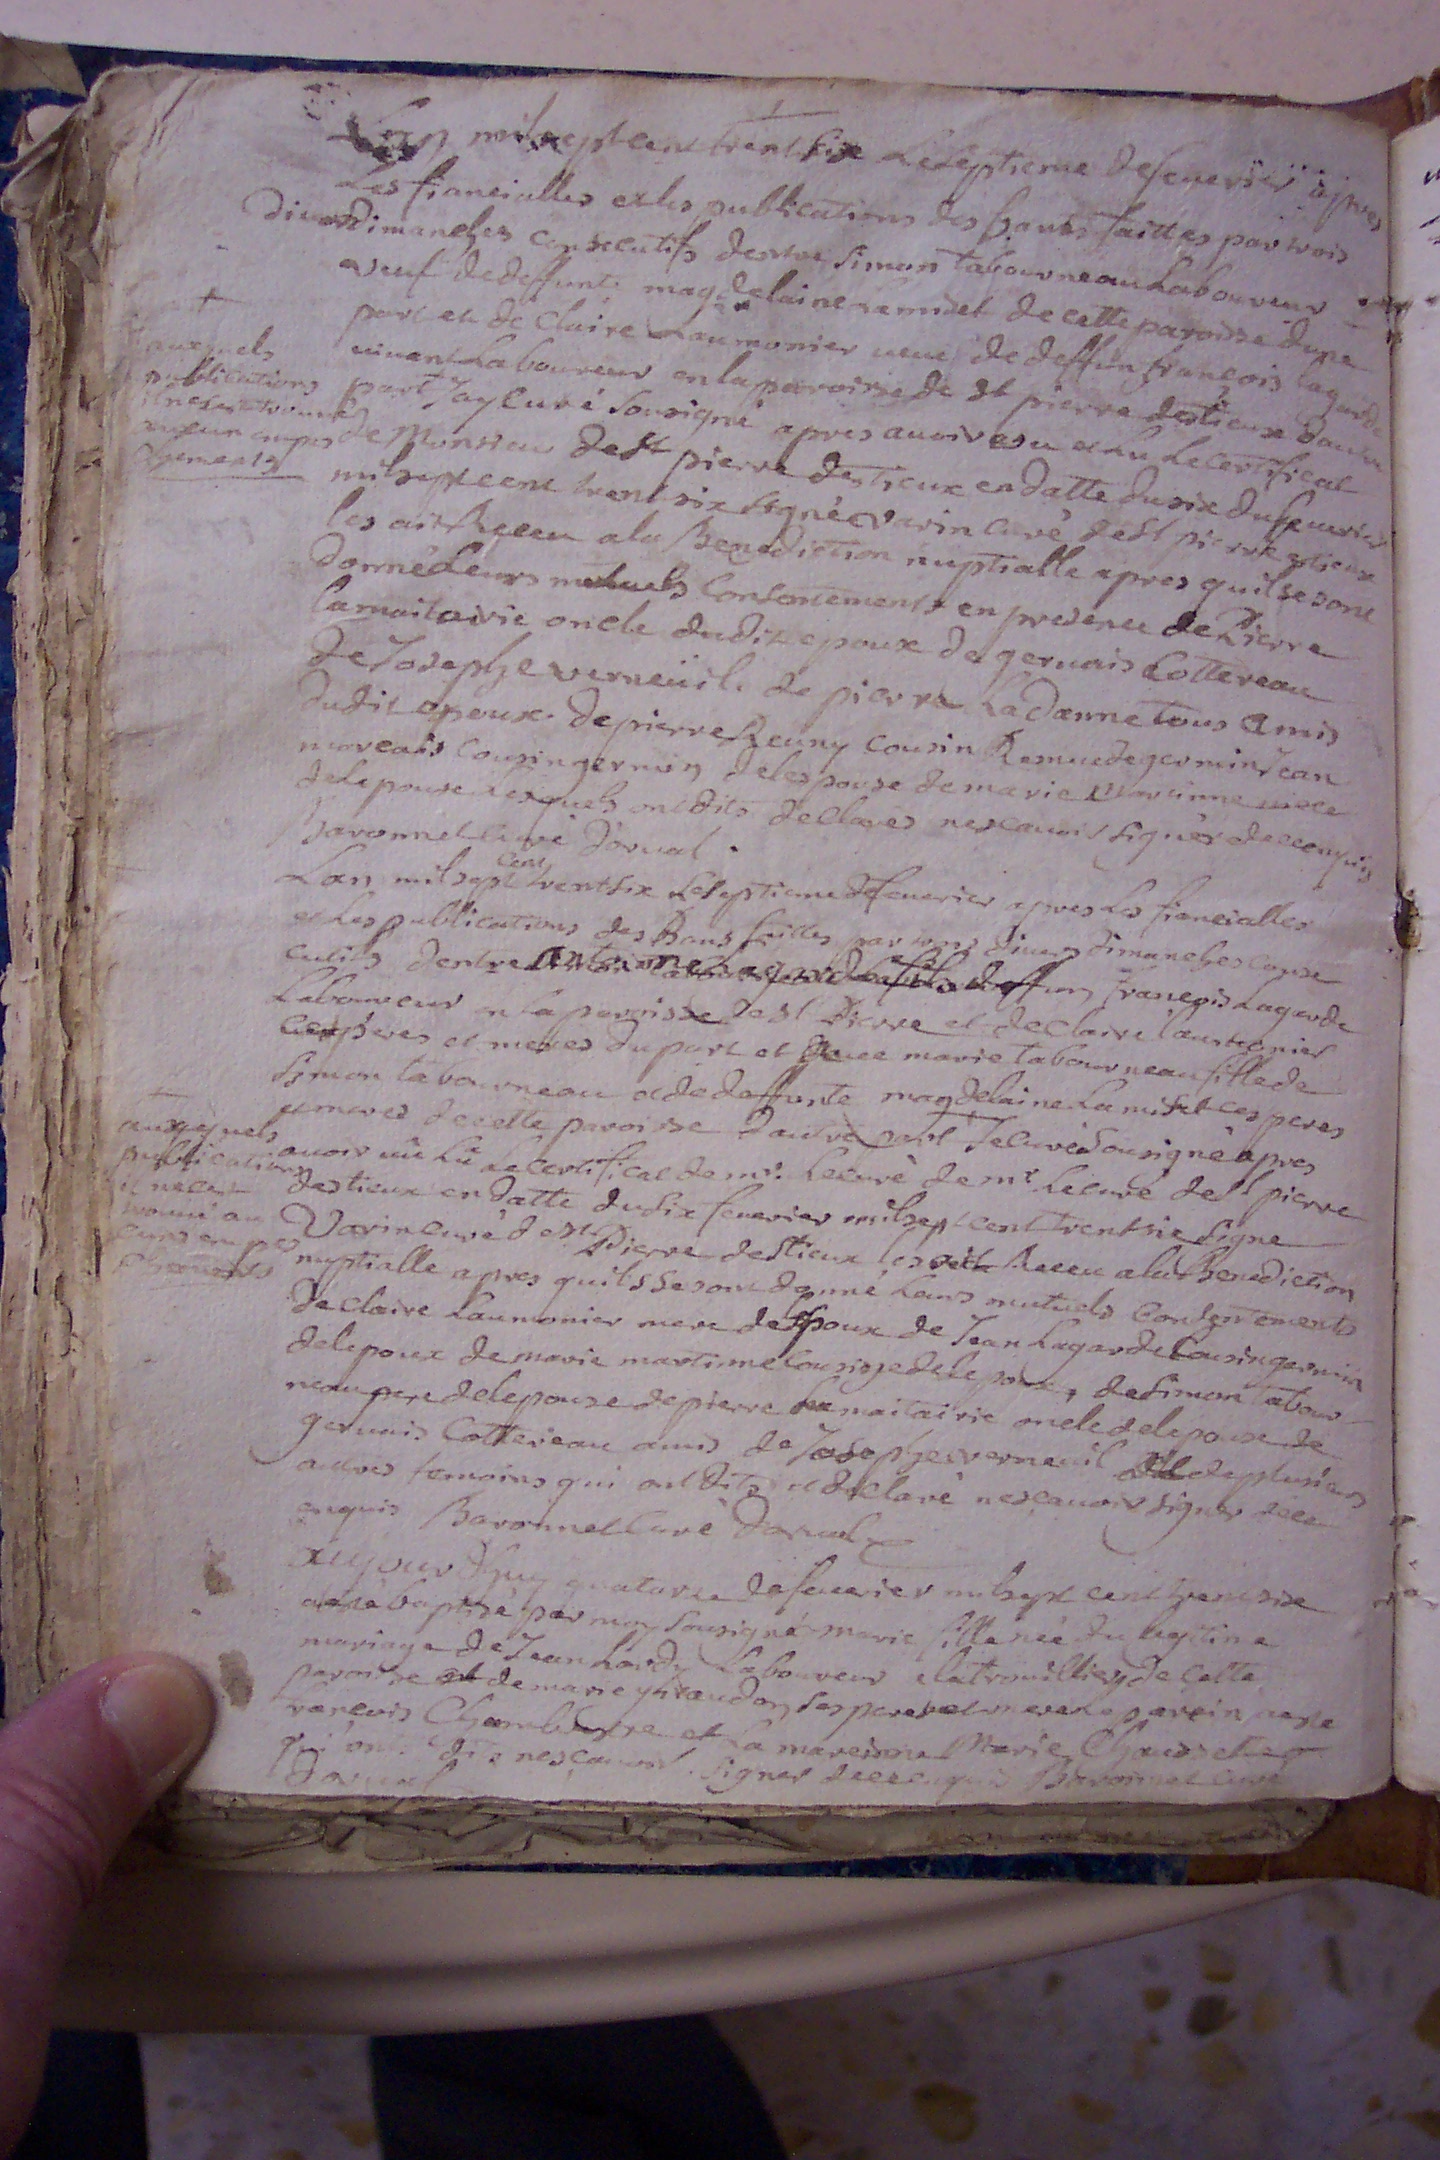 Lan mil sept cent trent six le septieme de feuerier apres
Les fiancialles et les publications des bans faittes par trois
diuers Dimanches consecutifs dentre Simon tabourneau Laboureur
veuf de deffunte magdelaine Lamiset de cette paroisse dune
part et de Claire Laumonier veuue de deffun françois lagarde
uiuant Laboureur en la paroisse de St pierre destieux dautre
part Jay Curé Sousigné apres auoir veu et Lu Le Certificat
de Monsieur de St pierre destieux en datte du six du feuerier
mil sept cent trent six signé Varin Curé de St pierre estieux
les ait Receu a la Benediction nuptialle apres quil se sont
donné Leurs mutuels Consentements en presence de Pierre
lamaitairie oncle dudit epoux de geruais Cottereau
de Josephe verneüil de pierre Ladanne tous Amis
dudit epoux de pierre Reuny Cousin Remue de germin Jean
moreau Cousin germin de lespouse de marie Martinne niece
de lepouse Lesquels ont dits declarés nescauoir signer de ce enquis
Baronnet Curé Dorual .
auxquels
publications
il ne sest trouué
aucun empes
chements
Lan mil sept Cent trent six Le septieme de feuerier apres Les fiancialles
et Les publications des Bans faittes par trois diuers dimanches conse
cutifs dentre antoinne Lagarde fils de deffun françois Lagarde
Laboureur en la paroisse de St Pierre et de Claire laumonier
ces peres et meres du part et marie tabourneau fille de
Simon tabourneau et de deffunte magdelaine Lamiset ces peres
et meres de cette paroisse dautre part Je curé Sousigné apres
auoir uü Lü Le Certificat de mr. Le curé de mr Le curé de St pierre
destieux en datte du six feuerier mil sept cent trent six signe
Varin curé de St Pierre destieux les ait Receu a la Benediction
nuptialle apres quils se sont donné Leurs mutuels Consentements
de Claire Laumonier mere de lepoux de Jean Lagarde Cousin germin
de lepoux de marie martinne Cousine de lepoux, de Simon tabour
neau pere de lepouse de pierre Lamaitairie oncle de lepouse de
geruais Cottereau amis de Josephe verneuil et de plusieurs
autres temoins qui ont dits et declaré nescauoir signer de ce
enquis Baronnet Curé Dorual
auxquels
publications
il ne sest
trouué au
cuns empes
chements
aujourdhuy quatorze de feuerier mil sept cent trent six
a été baptisé par moy Sousigné marie fille née du legitime
mariage de Jean hardy Laboureur de cette
paroisse et de marie giraudon ses pere et mere Le parein
francois Chambutre et La mareinne Marie
qui ont dits nescauoir signer de ce enquis Baronnet Curé
Dorual